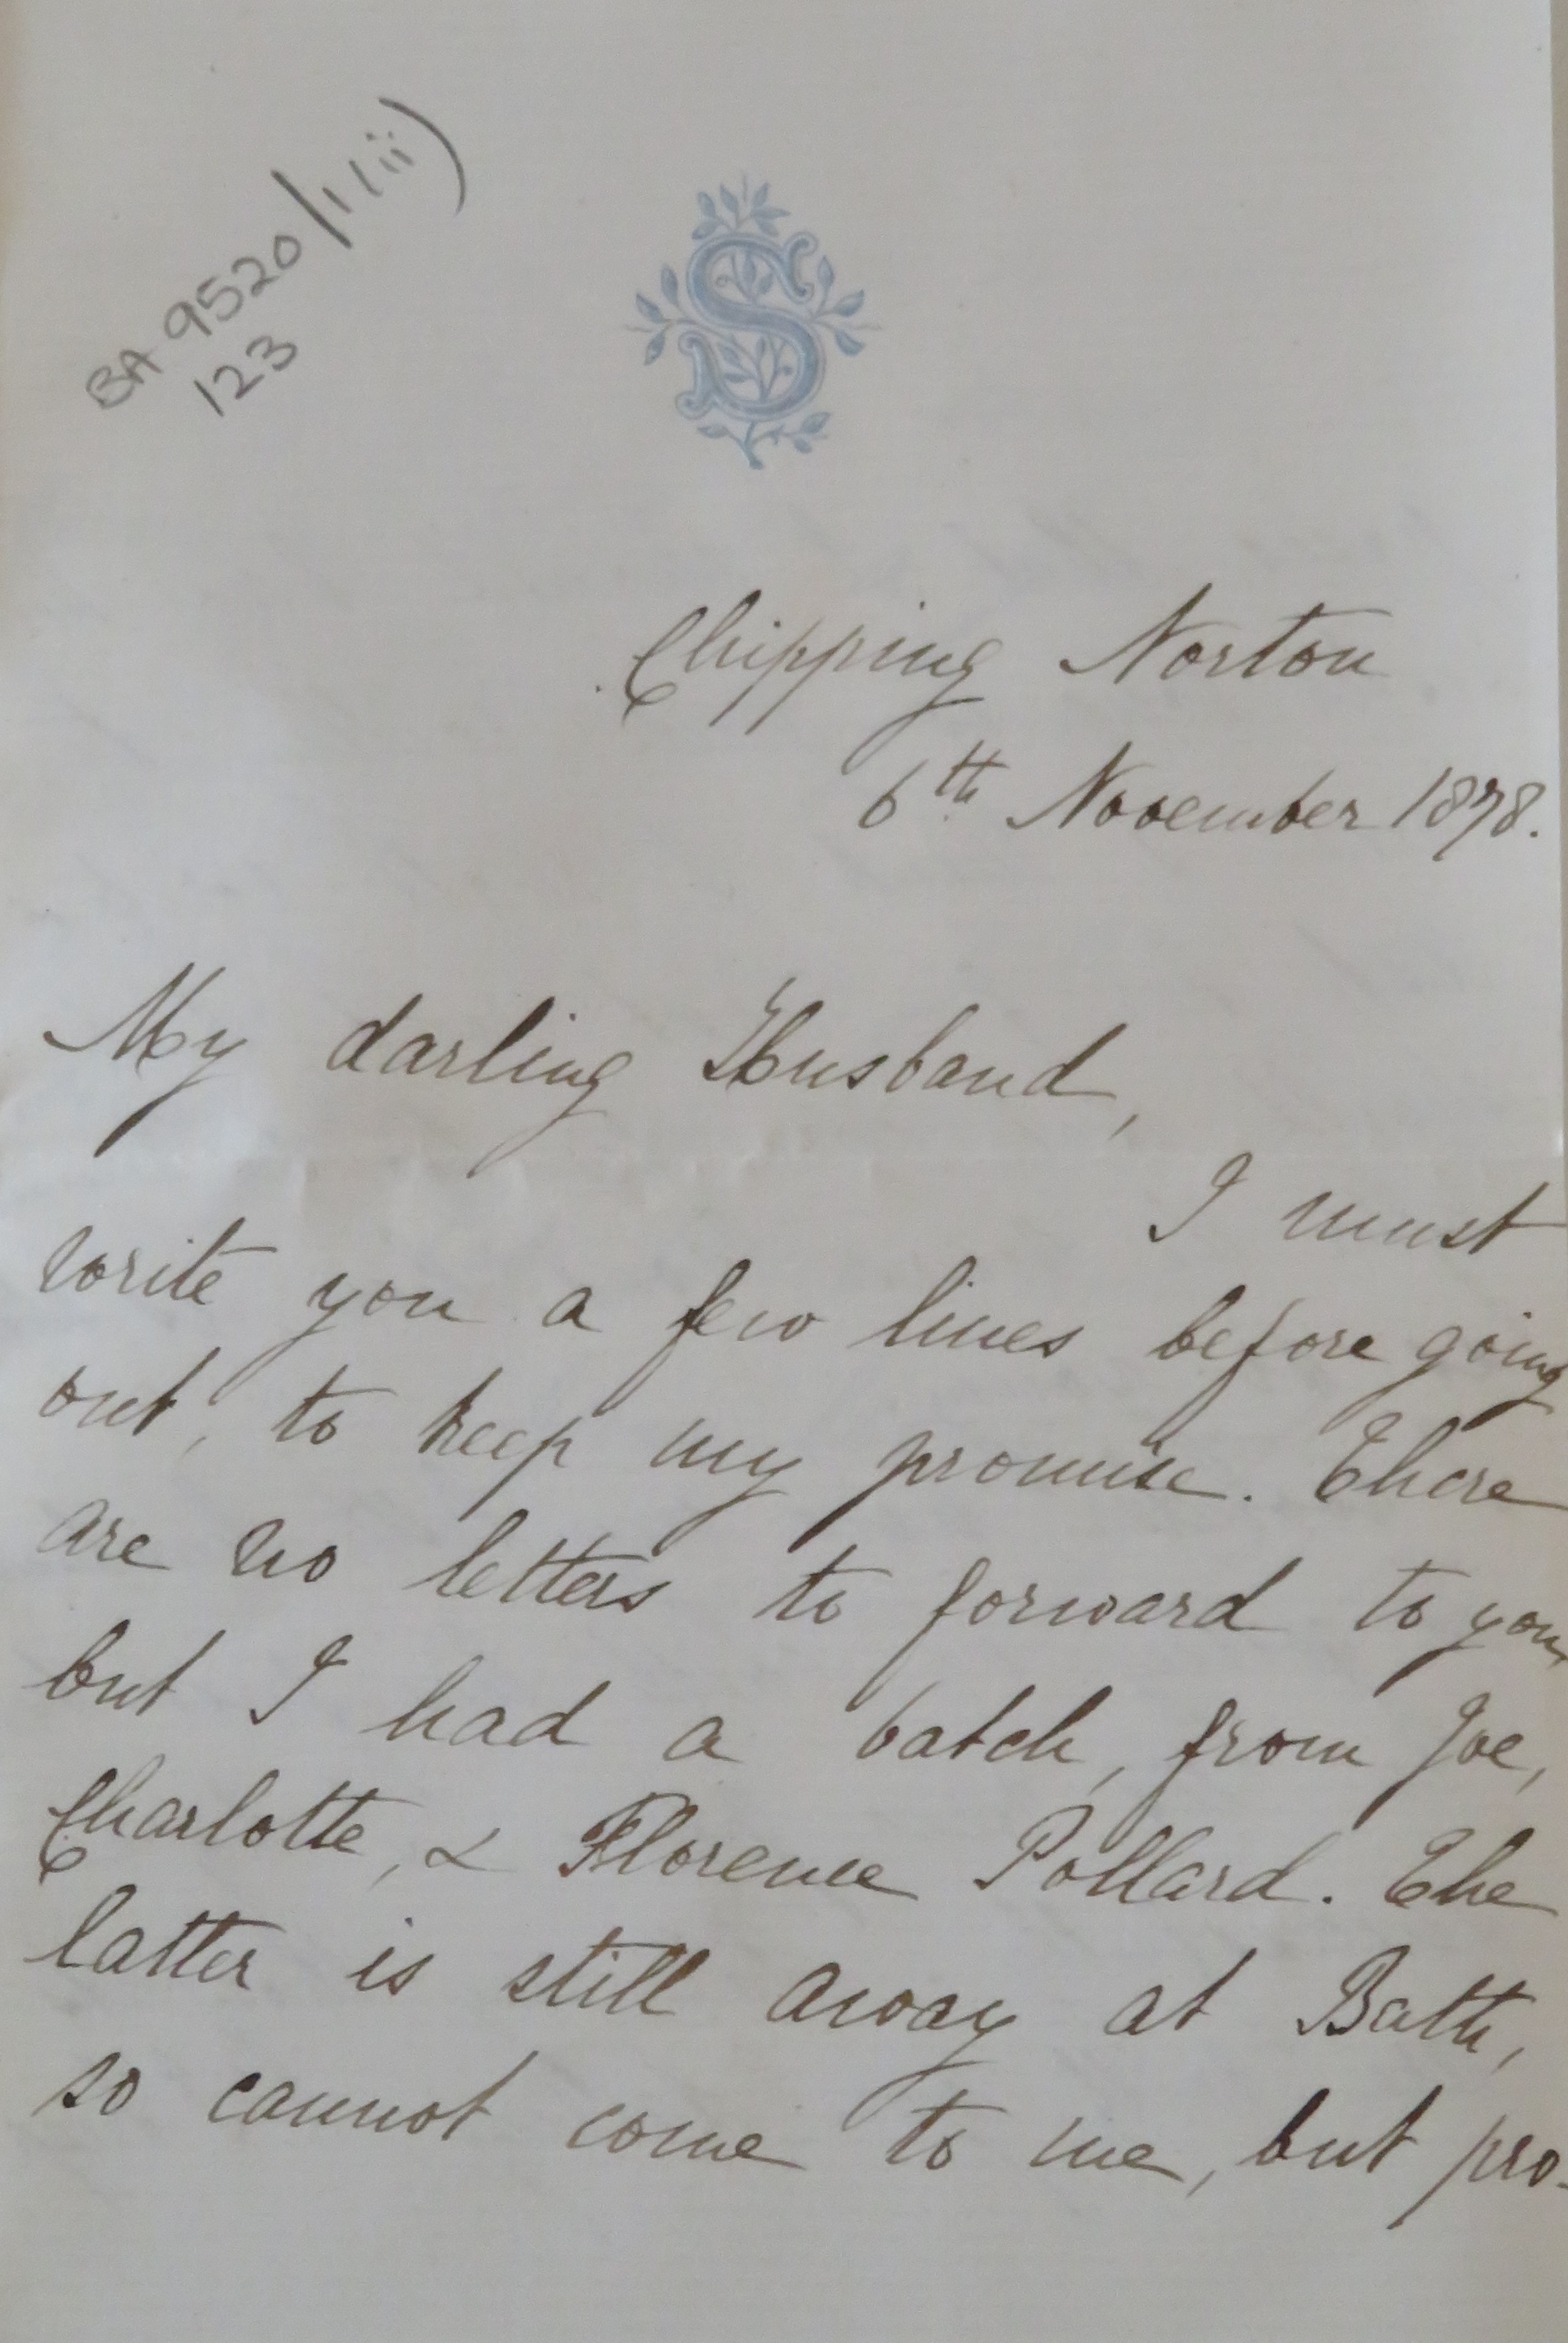 BA 9520/1(ii)
123
S
Chipping Norton
6th November 1878.
My darling Husband,
I must
write you a few lines before going
out, to keep my promise. There
are no letters to forward to you,
but I had a batch, from Joe,
Charlotte, & Florence Pollard. The
latter is still away at Bath,
so cannot come to me, but pro-